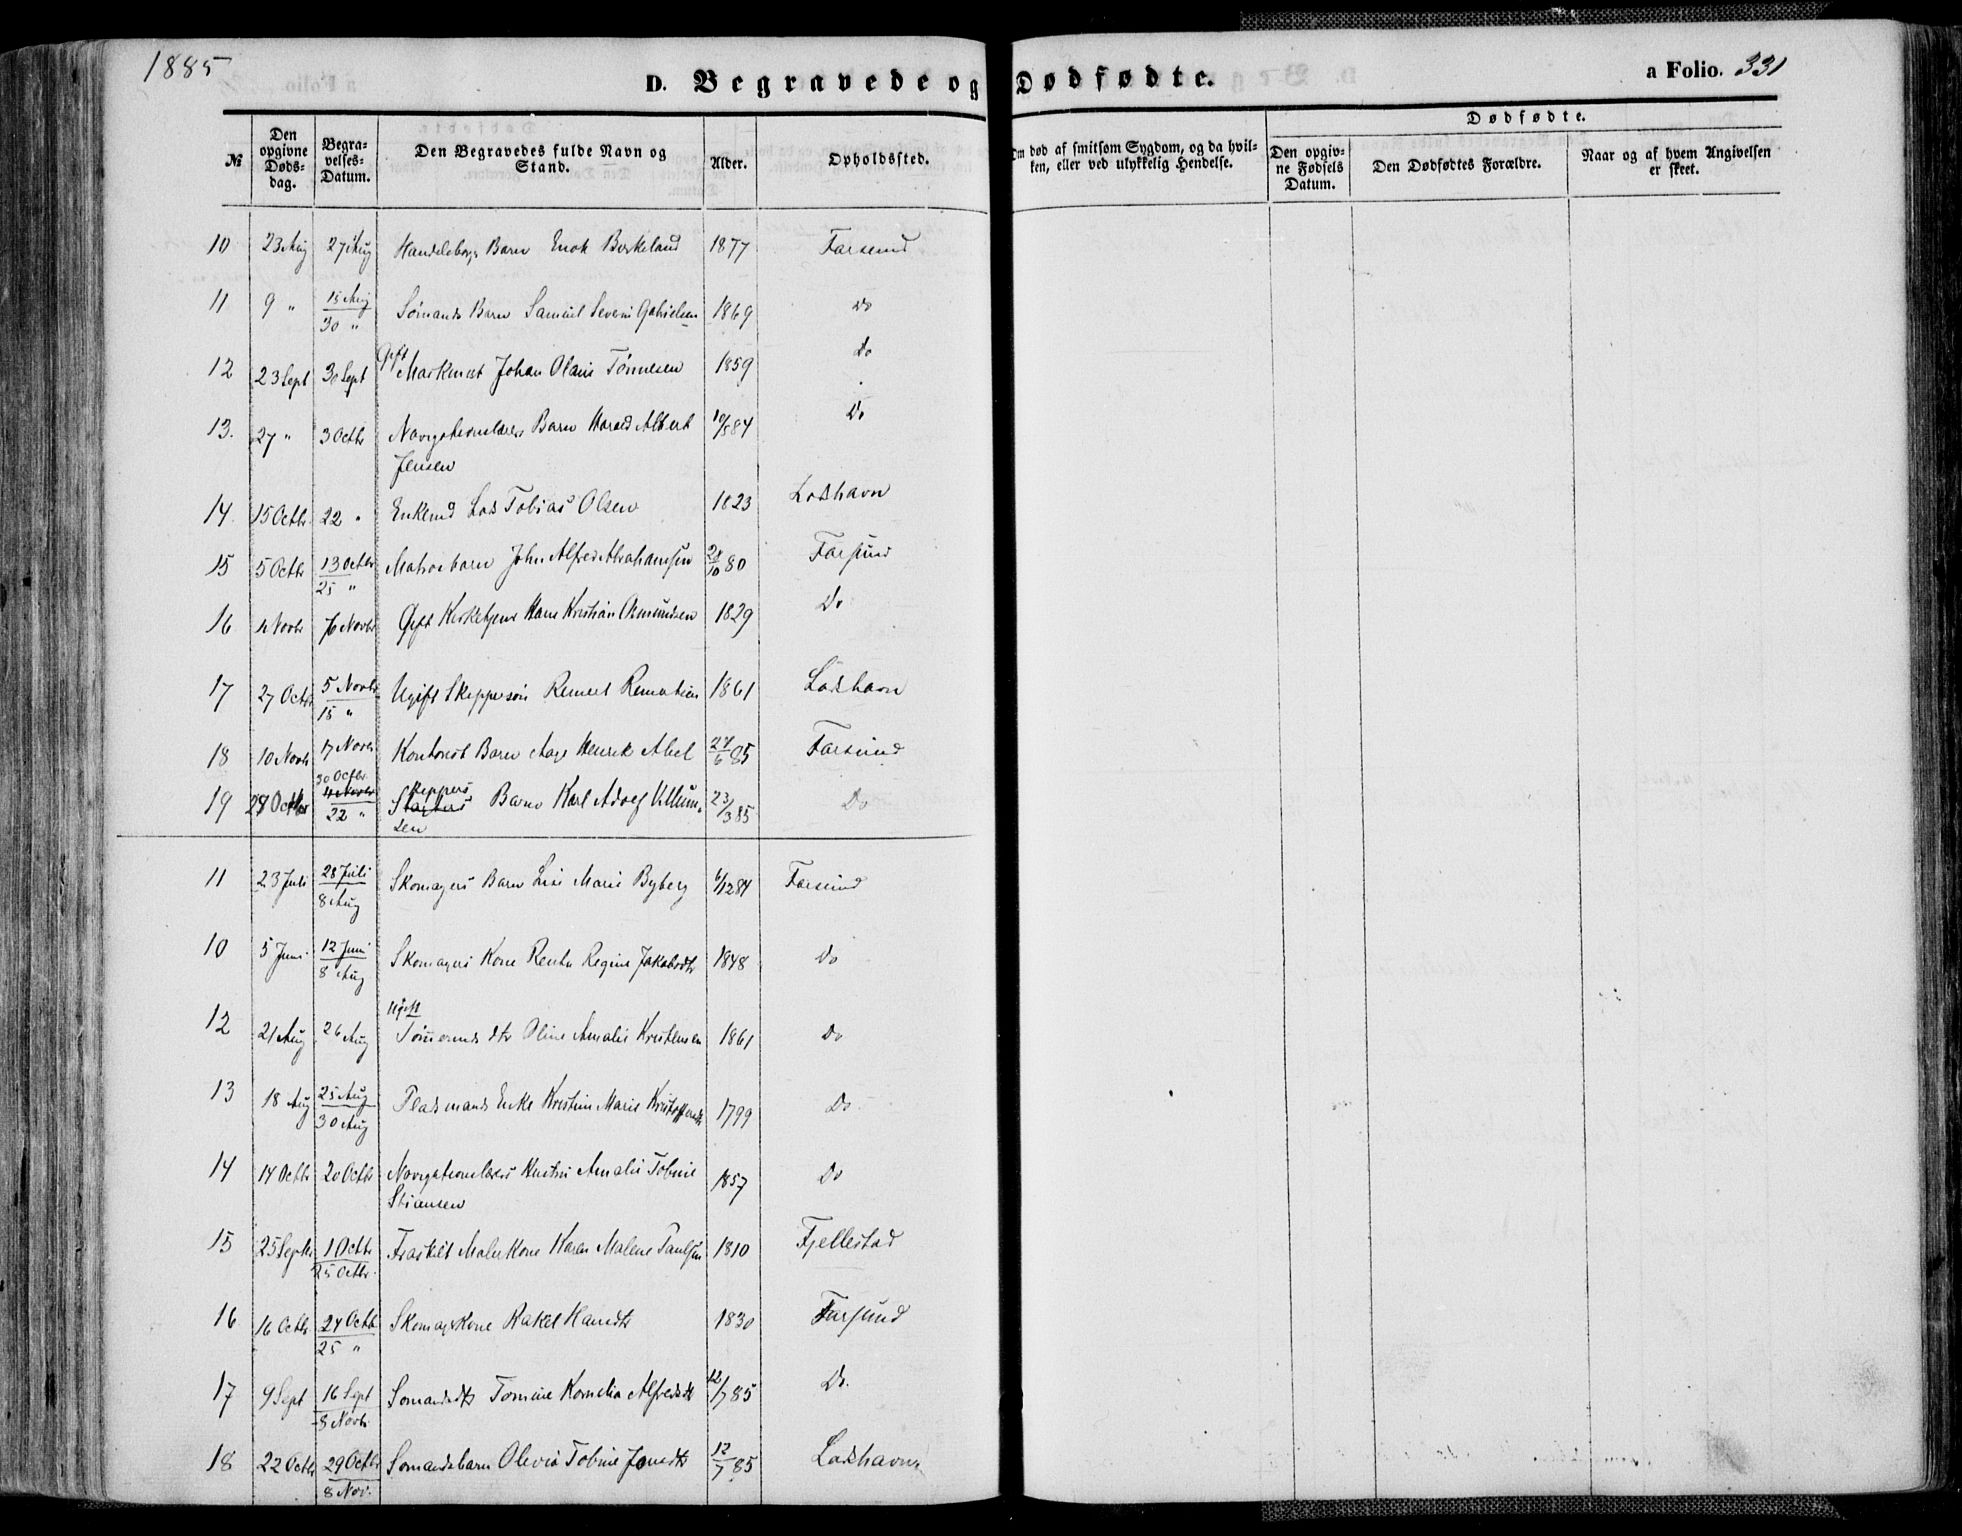 1885
D. Begravede og Dødfødte.
a Folio. 331
№
Den opgivne Døds-dag.
Begra-velses-Datum.
Den Begravedes fulde Navn og Stand.
Alder.
Opholdsted.
Om død af smitsom Sygdom, og da hvil-ken, eller ved ulykkelig Hendelse.
Dødfødte.
Den opgiv-ne Fødsels Datum.
Den Dødfødtes Forældre.
Naar og af hvem Angivelsen er skeet.
10 23 Aug 27 Aug Handelsborgs Barn Enok Berkeland 1877 Farsund
11 9 " 15 Aug / 30 " Sømands Barn Samuel Severin Gabrielsen 1869 Do
12 23 Sept 30 Sept Gift Johan Olaus Tønnesen 1859 Do
13. 27 " 3 Octbr Navigationslærers Barn Harald Albert 10/5 84 Do
Jensen
14 15 Octbr 22 " Enkemd Lods Tobias Olsen 1823 Loshavn
15 5 Octbr 13 Octbr / 25 " Matrosbarn John Alfred Abrahamsen 28/10 80 Farsund
16 4 Novbr 6 Novbr Gift Kirketjener Hans Kristian Osmundsen 1829 Do
17 27 Octbr 5 Novbr / 15 " Ugift Skippersøn Remert 1861 Loshavn
18 10 Novbr 17 Novbr Kontorist Barn Aage Henrik Abel 27/6 85 Farsund
30 Octbr.
19 28 Octbr 4 Novbr / 22 " Skippers Barn Karl Adolf Ellum- 23/3 85 Do
sen
11 23 Juli 28 Juli / 8 Aug Skomagers Barn Lise Marie Byberg 6/12 84 Farsund
10 5 Juni 12 Juni / 8 Aug Skomagers Kone Rentu Regine Jakobsdtr 1848 Do
Ugift
12 21 Aug 26 Aug Tømermds dtr Oline Amalie Kristensen 1861 Do
13 18 Aug 25 Aug / 30 Aug Pladsmands Enke Kristine Marie Kristoffersdtr 1799 Do
14 14 Octbr 20 Octbr Navigationslærers Hustru Amalie Tobine 1857 Do
Stiansen
15 25 Septbr 1 Octbr / 25 Octbr. Fraskilt Malerkone Karen Malene Paulsen 1810 Fjellestad
16 16 Octbr 24 Octb / 25 " Skomagerkone Rakel Hansdtr 1830 Farsund
17 9 Sept 16 Sept / 8 Novbr Sømandsdtr Tomine Kornelia Alfredsdtr 12/7 85 Do.
18 22 Octbr 29 Octbr / 8 Nov. Sømandsbarn Olevia Tobine Jonsdtr 12/7 85 Loshavn